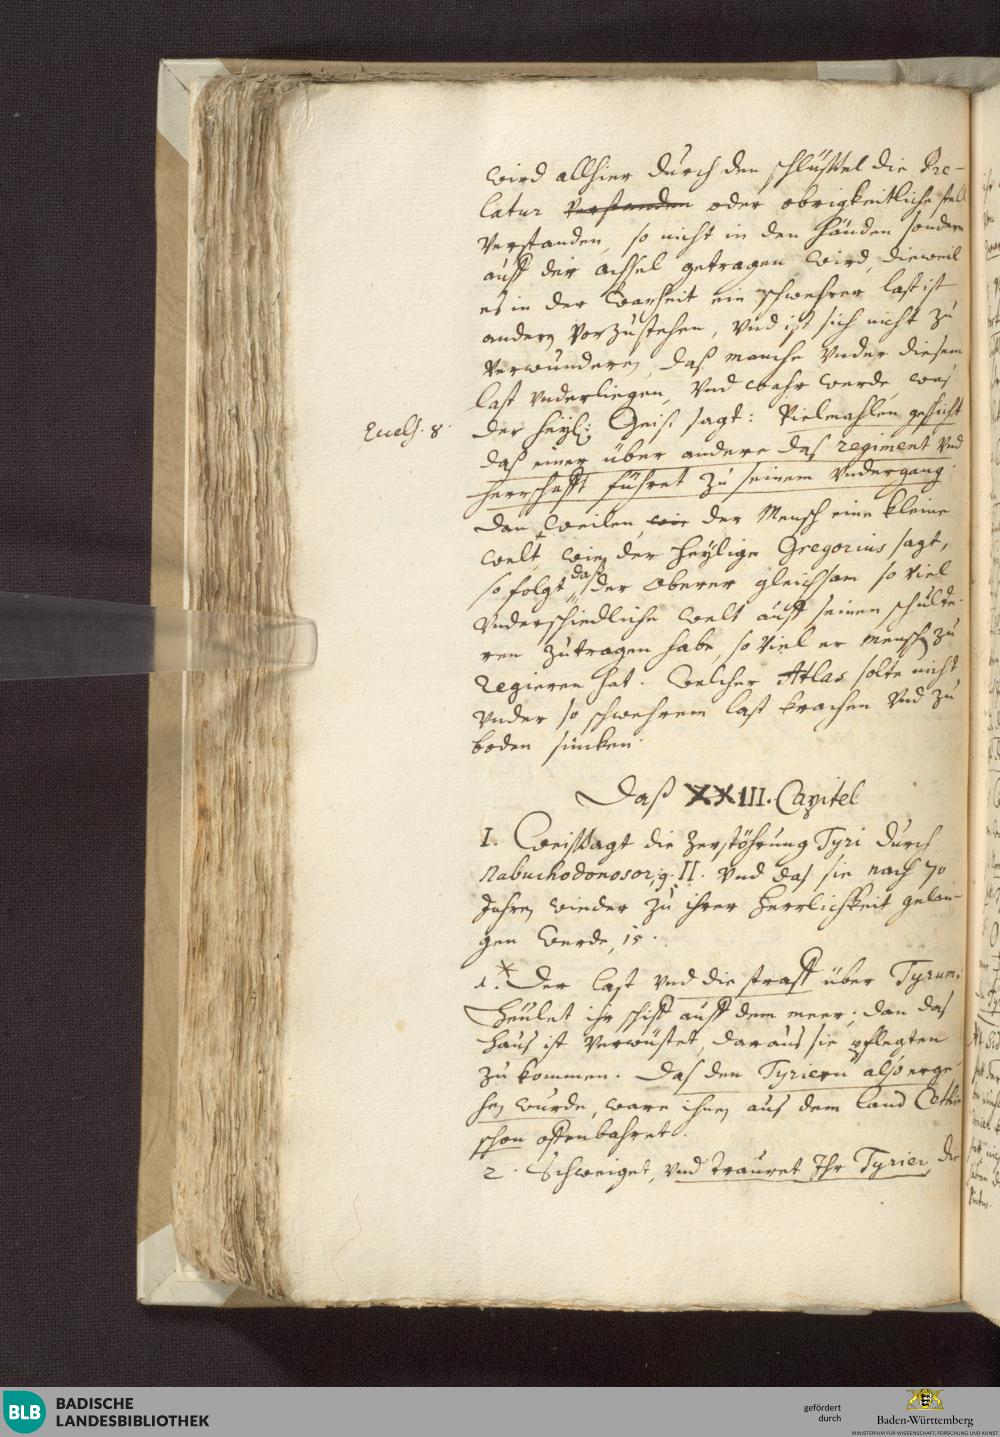 wird allhier durch den schlüssel die Pre-
latur verstanden oder obrigkeitliche stell
verstanden, so nicht in den händen sondern
auff der achsel getragen wird, dieweil
es in der warheit ein schwehrer last ist
andern vorzustehen, vnd ist sich nicht zu
verwunderen, daß manche vnder diesem
last vnderliegen, vnd wahr werde, was
Eccles. 8. der heyl: Geist sagt: Vielmahlen geschicht
daß einer über andere das regiment vnd
herrschafft führet zu seinem vndergang.
dan weilen wie der Mensch eine kleine
welt, wie der heylige Gregorius sagt,
so folgt daß der oberer gleichsam so viel
vnderschiedliche welt auff seinen schulte-
ren zutragen habe, so viel er mensch zu
regieren hat. Welcher Atlas solte nicht
vnder so schwehrem last krachen vnd zu
boden sincken.
Daß XXIII. Capitel
I. Weissagt die Zerstöhrung Tyri durch
Nabuchodonosor, II. vnd das sie nach 70
Jahren wieder zu ihrer Herrlichkeit gelan-
gen werde, 15.
1. * Der last vnd die straff über Tyrum.
Heulet ihr schiff auff dem meer; dan das
haus ist verwüstet, daraus sie pflegten
zu kommen. Das den Tyriern also erge-
hen wurde, ware ihnen aus dem land Cethim
schon offenbahret.
2. Schweiget, vnd trauret Ihr Tyrier, die
BLB BADISCHE
LANDESBIBLIOTHEK
gefördert
durch
Baden-Württemberg
MINISTERIUM FÜR WISSENSCHAFT, FORSCHUNG UND KUNST